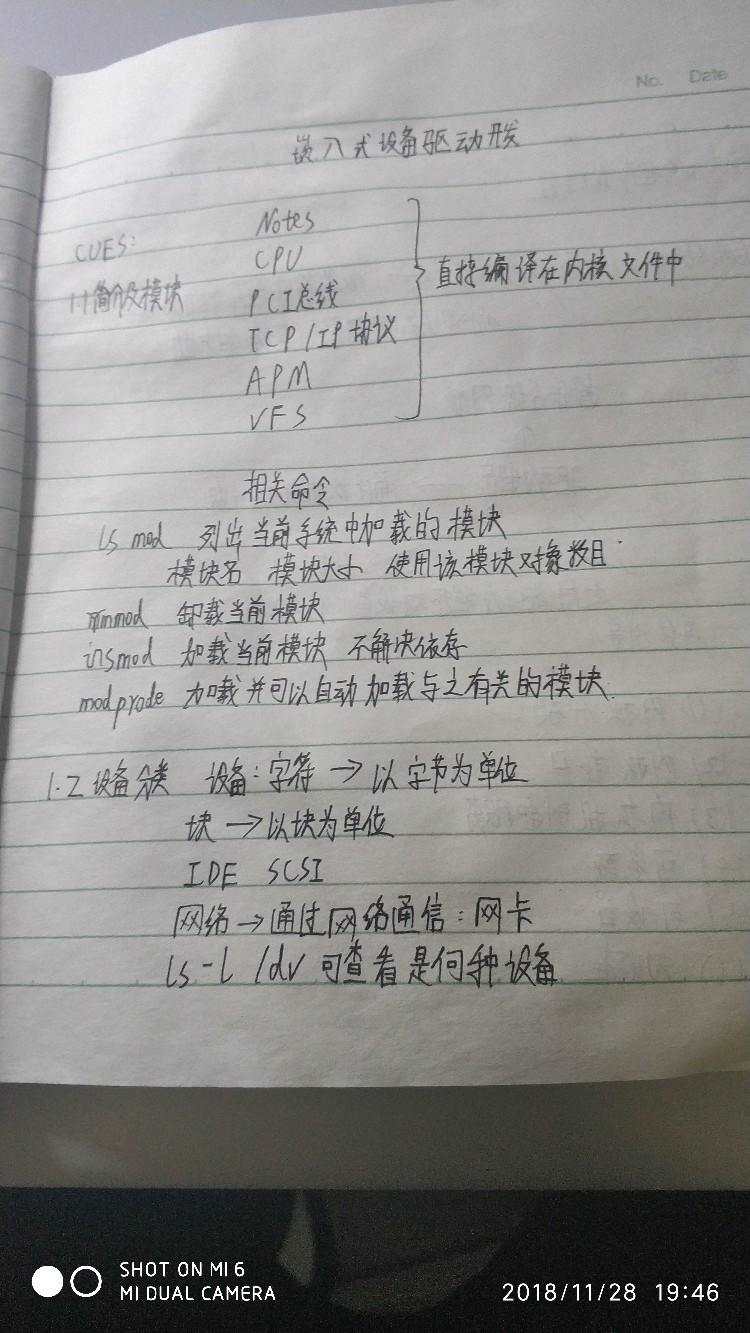 No. Date
嵌入式设备驱动开发
Notes
CUES:
CPU
1.1简介及模块
PCI总线
直接编译在内核文件中
TCP/IP协议
APM
VFS
相关命令
ls mod 列出当前系统中加载的模块
模块名 模块大小 使用该模块对象数目
rmmod 卸载当前模块
insmod 加载当前模块 不解决依存
modprode 加载并可以自动加载与之有关的模块.
1.2设备分类 设备:字符→以字节为单位
块→以块为单位
IDE SCSI
网络→通过网络通信:网卡
ls-l /dv 可查看是何种设备
SHOT ON MI 6
MI DUAL CAMERA
2018/11/28 19:46